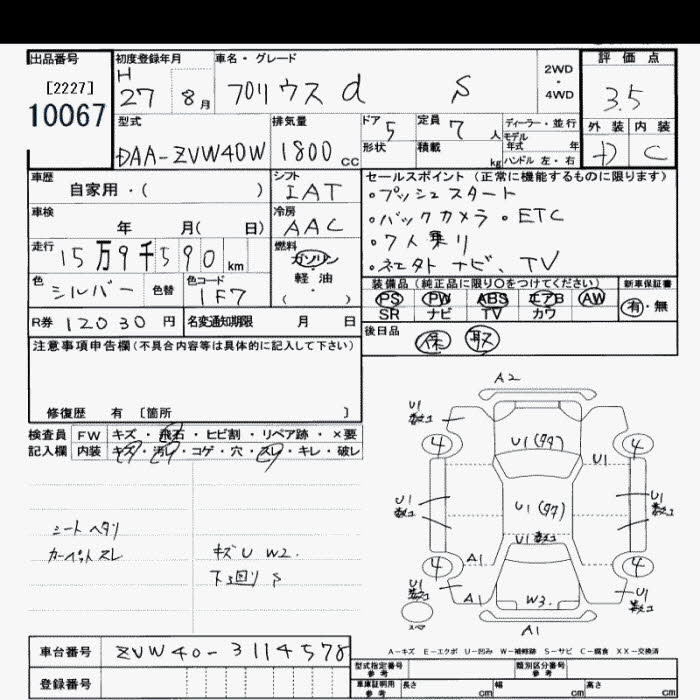 出品番号 初度登録年月 車名・グレード 評価点
[2227] H 27 8月 プリウスα S 2WD・4WD 3.5
10067 型式 排気量 ドア 5 定員 7人 ディーラー・並行 外装 内装
DAA-ZVW40W 1800cc 形状 積載 kg モデル年式 年 D C
ハンドル 左・右
車歴 シフト セールスポイント (正常に機能するものに限ります)
自家用・( ) IAT ・プッシュスタート
車検 冷房 ・バックカメラ ・ETC
年 月( 日) AAC ・7人乗り
走行 燃料 ・社外ナビ、TV
15万9千590km ガソリン・軽油・( )
色 シルバー 色替 色コード 1F7
装備品 (純正品に限り○をつけてください) 新車保証書
PS PW ABS エアB AW 有・無
SR ナビ TV カワ
R券 12030円 名変通知期限 月 日
後日品 保 取
注意事項申告欄(不具合内容等は具体的に記入して下さい)
修復歴 有 [箇所 ]
検査員 FW キズ・飛石・ヒビ割・リペア跡・×要
記入欄 内装 キズ・汚レ・コゲ・穴・スレ・キレ・破レ
シートヘタリ
カーペットスレ
キズ U W2.
下回り S
A2
U1 数コ
4 U1(タタ) 4
U1
U1 数コ U1(タタ) U1 数コ
U1 数コ
A1
4 4
U1 数コ A1 W3. U1 数コ
スペア
A1
A-キズ E-エクボ U-凹み W-補修跡 S-サビ C-腐食 XX-交換済
車台番号 ZVW40-3114578
登録番号
型式指定番号 参考 類別区分番号 参考
車庫証明用 参考 長さ cm 幅 cm 高さ cm